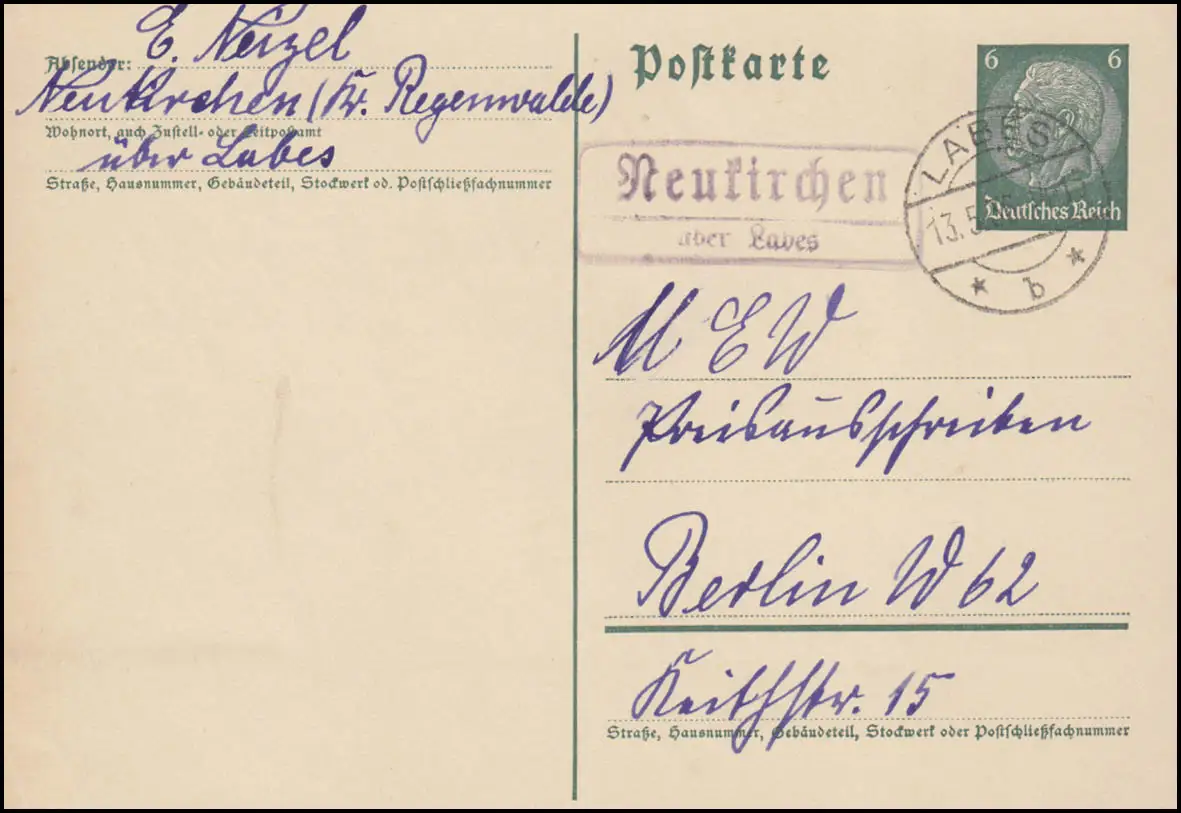 E. Neizel
Absender:
Neukirchen (Kr. Regenwalde)
Wohnort, auch Zustell- oder Leitpostamt
über Labes
Straße, Hausnummer, Gebäudeteil, Stockwerk od. Postschließfachnummer
Postkarte
6 6
Deutsches Reich
LABES
13.5.
b
Neukirchen
über Labes
M E W
Preisausschreiben
Berlin W 62
Keithstr. 15
Straße, Hausnummer, Gebäudeteil, Stockwerk oder Postschließfachnummer